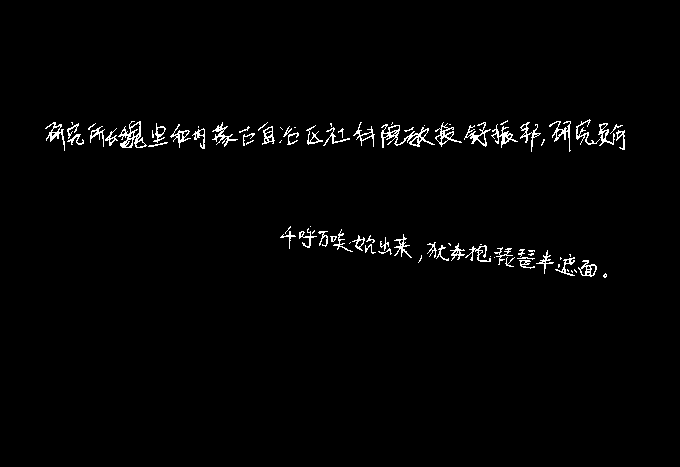 研究所长魏坚和内蒙古自治区社科院教授舒振邦,研究员何
千呼万唤始出来,犹抱琵琶半遮面。